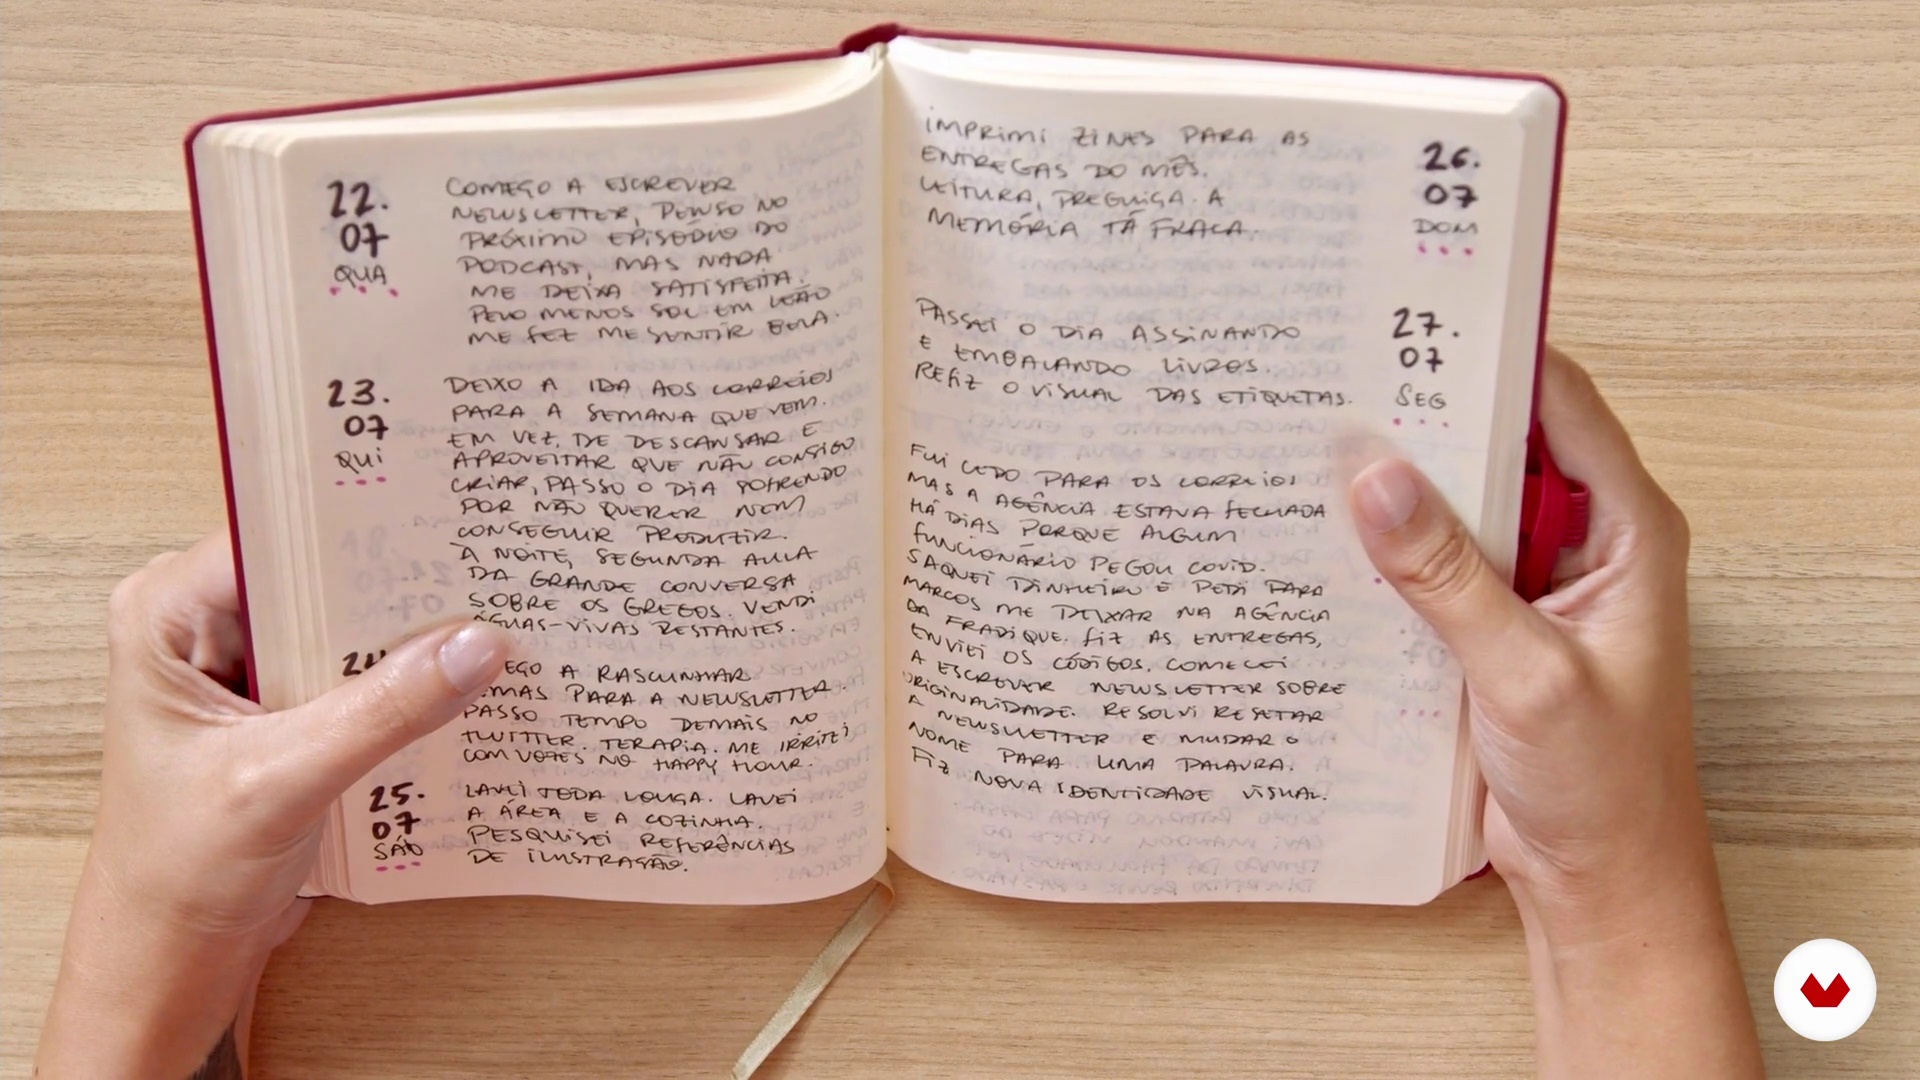 22.
07
QUA
COMEÇO A ESCREVER
NEWSLETTER, PENSO NO
PRÓXIMO EPISÓDIO DO
PODCAST, MAS NADA
ME DEIXA SATISFEITA.
PELO MENOS SOL EM LEÃO
ME FEZ ME SENTIR BELA.
23.
07
QUI
DEIXO A IDA AOS CORREIOS
PARA A SEMANA QUE VEM.
EM VEZ DE DESCANSAR E
APROVEITAR QUE NÃO CONSIGO
CRIAR, PASSO O DIA SOFRENDO
POR NÃO QUERER NEM
CONSEGUIR PRODUZIR.
À NOITE, SEGUNDA AULA
DA GRANDE CONVERSA
SOBRE OS GREGOS. VENDI
ÁGUAS-VIVAS RESTANTES.
EGO A RASCUNHAR
PARA A NEWSLETTER.
PASSO TEMPO DEMAIS NO
TWITTER. TERAPIA. ME IRRITEI
COM VOZES NO HAPPY HOUR.
25.
07
SÁB
LAVEI TODA LOUÇA. LAVEI
A ÁREA E A COZINHA.
PESQUISEI REFERÊNCIAS
DE ILUSTRAÇÃO.
IMPRIMI ZINES PARA AS
ENTREGAS DO MÊS.
LEITURA, PREGUIÇA. A
MEMÓRIA TÁ FRACA.
26.
07
DOM
PASSEI O DIA ASSINANDO
E EMBALANDO LIVROS.
REFIZ O VISUAL DAS ETIQUETAS.
27.
07
SEG
FUI CEDO PARA OS CORREIOS
MAS A AGÊNCIA ESTAVA FECHADA
HÁ DIAS PORQUE ALGUM
FUNCIONÁRIO PEGOU COVID.
SAQUEI DINHEIRO E PEDI PARA
MARCOS ME DEIXAR NA AGÊNCIA
DA FRADIQUE. FIZ AS ENTREGAS,
ENVIEI OS CÓDIGOS. COMECEI
A ESCREVER NEWSLETTER SOBRE
ORIGINALIDADE. RESOLVI RESETAR
A NEWSLETTER E MUDAR O
NOME PARA UMA PALAVRA.
FIZ NOVA IDENTIDADE VISUAL.